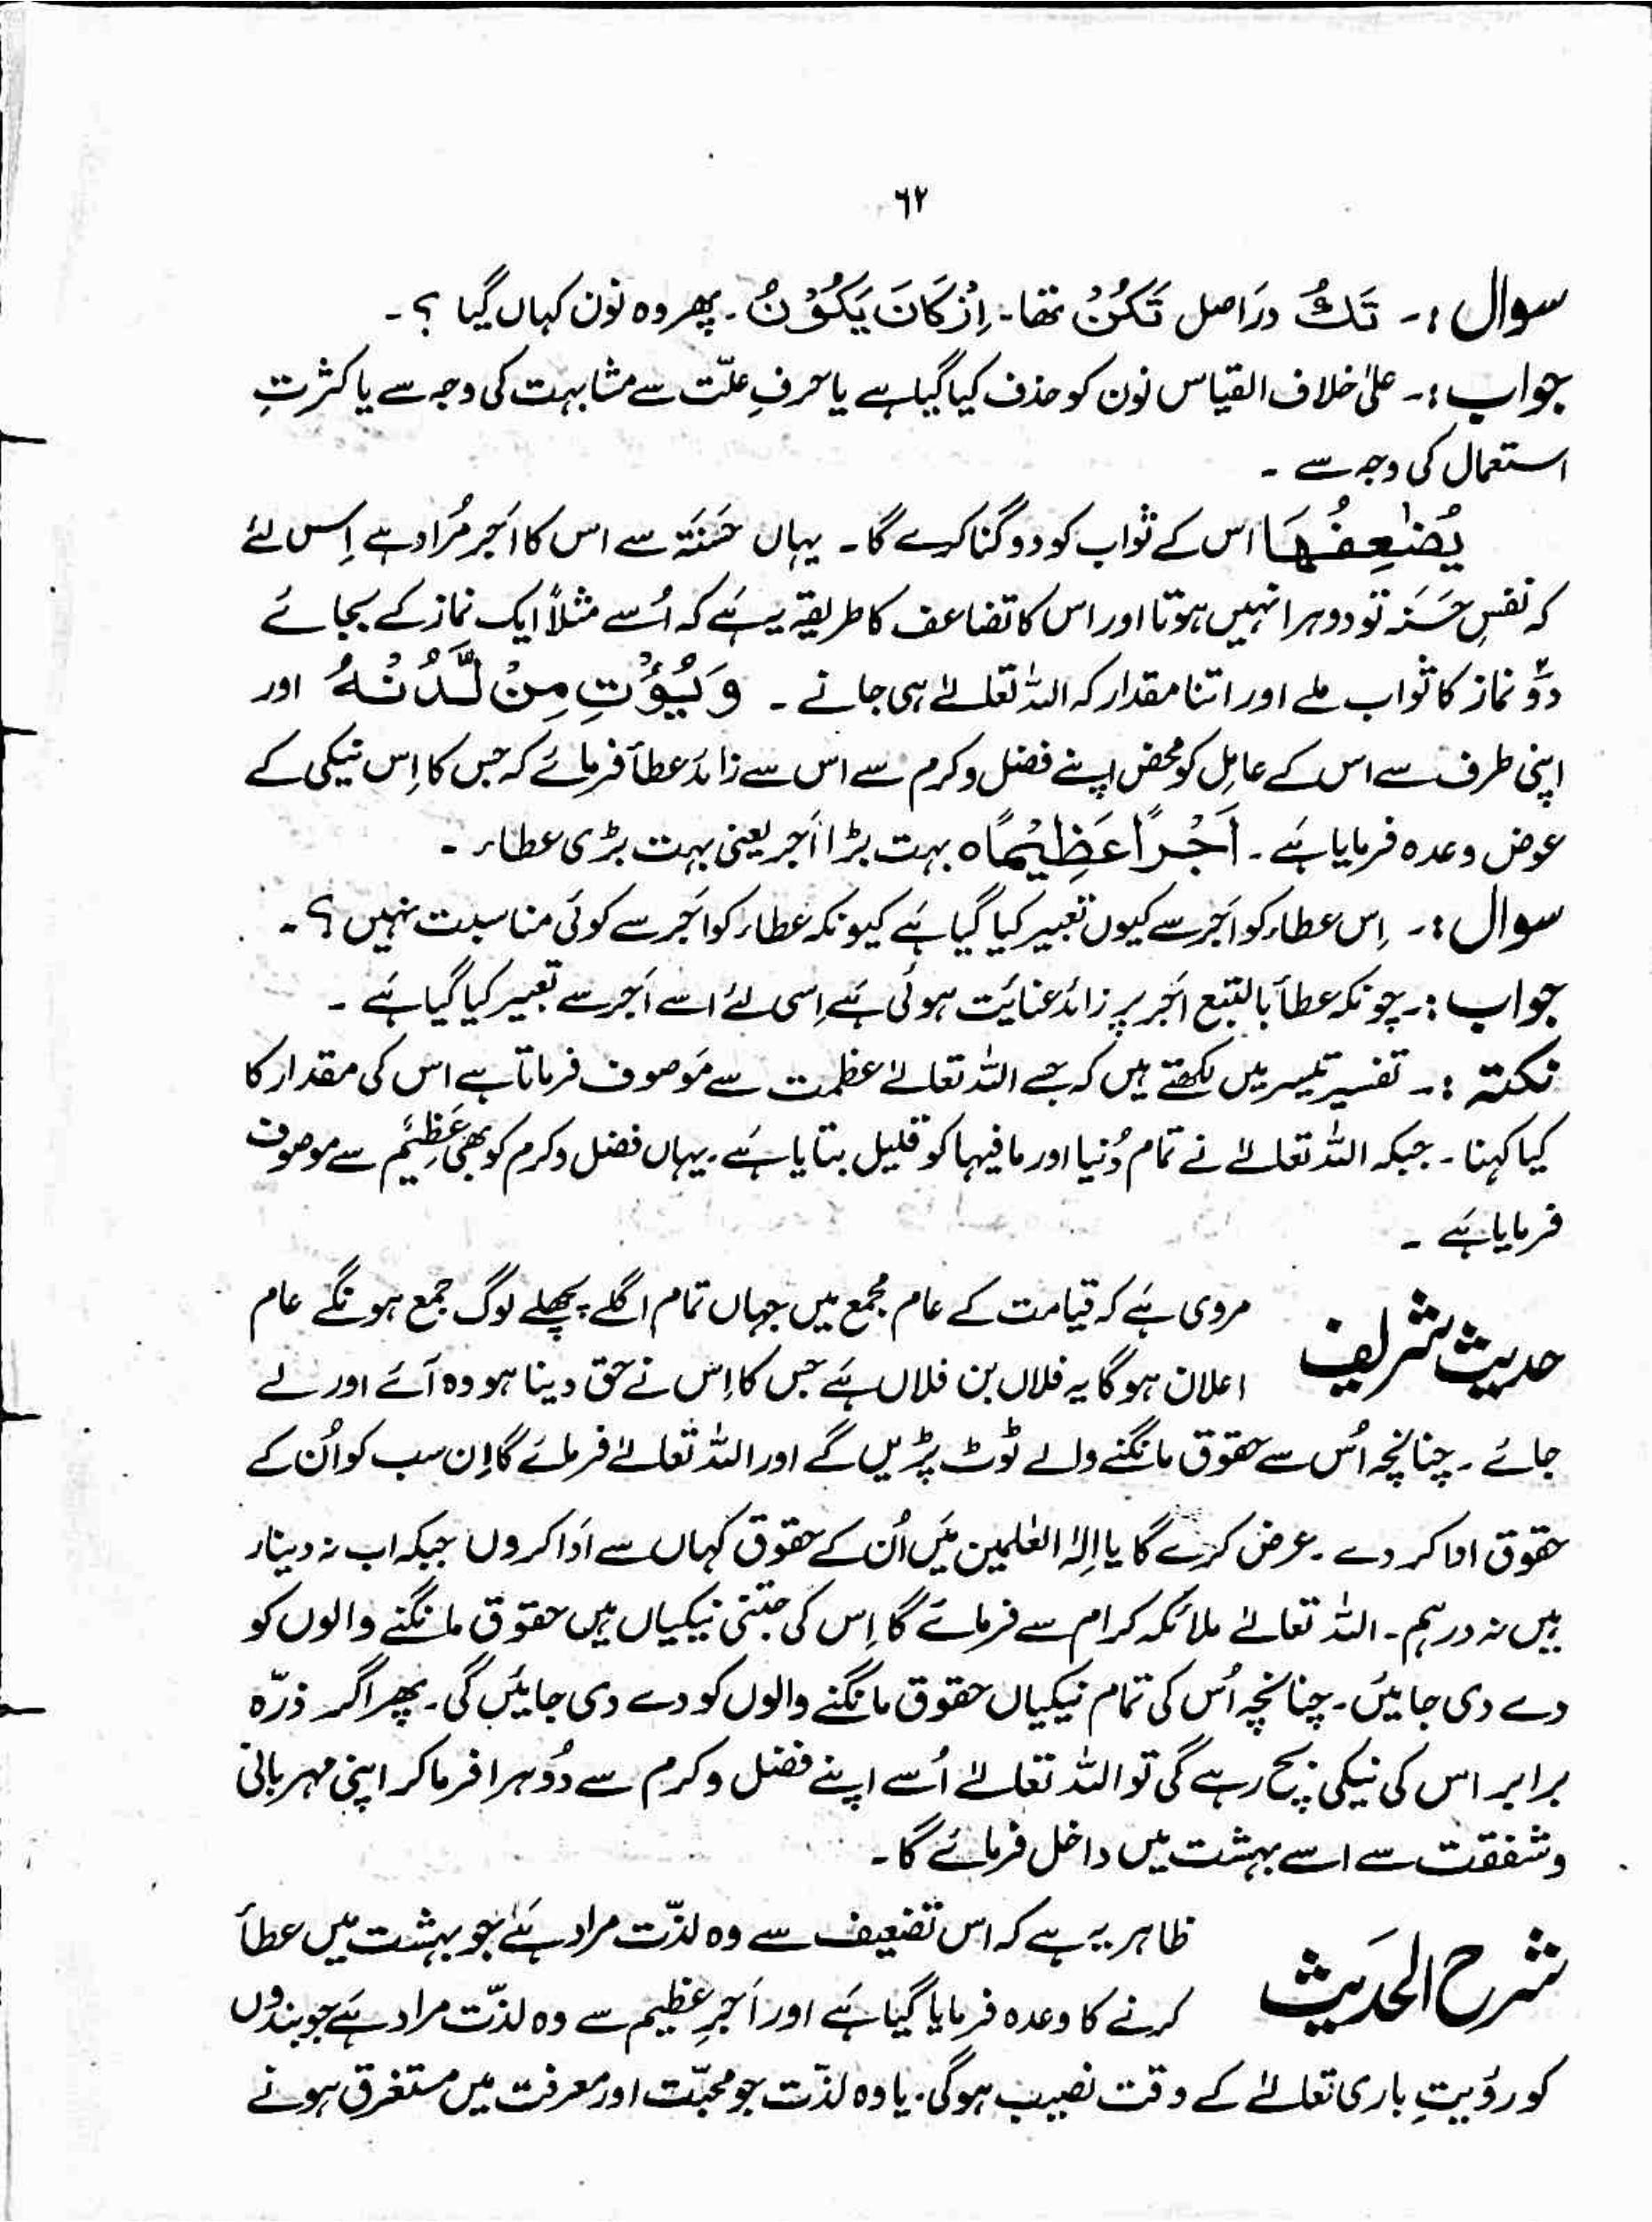 ۶۲
سوال :۔ تَکُ دراَصل تَکُنْ تھا۔ اِزْکَانَ یَکُوْنُ ۔ پھر وہ نون کہاں گیا ؟ ۔
جواب :۔ علیٰ خلاف القیاس نون کو حذف کیا گیا ہے یا حرفِ علّت سے مشابہت کی وجہ سے یا کثرتِ
استعمال کی وجہ سے ۔
یُضٰعِفُہَا اس کے ثواب کو دوگنا کرے گا ۔ یہاں حَسَنَۃ سے اس کا اَجر مُراد ہے اِس لئے
کہ نفسِ حَسَنہ تو دوہرا نہیں ہوتا اور اس کا تضاعف کا طریقہ یہ ہَے کہ اُسے مثلاً ایک نماز کے بجائے
دوؔ نماز کا ثواب ملے اور اتنا مقدار کہ اللہ تعالےٰ ہی جانے ۔ وَیُؤْتِ مِنْ لَّدُنْہُ اور
اپنی طرف سے اس کے عامِل کو محض اپنے فضل و کرم سے اس سے زائد عطأ فرمائے کہ جس کا اِس نیکی کے
عوض وعدہ فرمایا ہَے ۔ اَجْرًا عَظِیْمًا ہ بہت بڑا اَجر یعنی بہت بڑی عطاء ۔
سوال :۔ اِس عطاء کو اَجر سے کیوں تعبیر کیا گیا ہَے کیونکہ عطاء کو اَجر سے کوئی مناسبت نہیں ؟ ۔
جواب :۔ چونکہ عطأ بالتبع اَجر پر زائد عنائیت ہوئی ہَے اِسی لئے اسے اَجر سے تعبیر کیا گیا ہَے ۔
نکتہ :۔ تفسیر تیسیر میں لکھتے ہیں کہ جسے اللہ تعالےٰ عظمت سے مَوصوف فرماتا ہے اس کی مقدار کا
کیا کہنا ۔ جبکہ اللہ تعالےٰ نے تمام دُنیا اور مافیہا کو قلیل بتایا ہَے ۔ یہاں فضل و کرم کو بھی عَظِیْم سے موصوف
فرمایا ہَے ۔
حدیث شریف مروی ہَے کہ قیامت کے عام مجمع میں جہاں تمام اگلے پچھلے لوگ جمع ہونگے عام
اعلان ہوگا یہ فلاں بن فلاں ہَے جس کا اِس نے حق دینا ہو وہ آئے اور لے
جائے ۔ چنانچہ اُس سے حقوق مانگنے والے ٹوٹ پڑیں گے اور اللہ تعالےٰ فرمائے گا اِن سب کو اُن کے
حقوق ادا کر دے ۔ عرض کرے گا یا اِلٰہ العٰلمین مَیں اُن کے حقوق کہاں سے اَدا کروں جبکہ اب نہ دینار
ہیں نہ درہم ۔ اللہ تعالےٰ ملائکہ کرام سے فرمائے گا اِس کی جتنی نیکیاں ہیں حقوق مانگنے والوں کو
دے دی جائیں ۔ چنانچہ اُس کی تمام نیکیاں حقوق مانگنے والوں کو دے دی جائیں گی ۔ پھر اگر ذرّہ
برابر اس کی نیکی بچ رہے گی تو اللہ تعالےٰ اُسے اپنے فضل و کرم سے دُوہرا فرما کر اپنی مہربانی
و شفقت سے اسے بہشت میں داخل فرمائے گا ۔
شرح الحَدیث ظاہر یہ ہے کہ اس تضعیف سے وہ لذّت مراد ہَے جو بہشت میں عطأ
کرنے کا وعدہ فرمایا گیا ہَے اور اَجرِ عظیم سے وہ لذّت مراد ہَے جو بندوں
کو رؤیتِ باری تعالےٰ کے وقت نصیب ہوگی ۔ یا وہ لذّت جو محبّت اور معرفت میں مستغرق ہونے